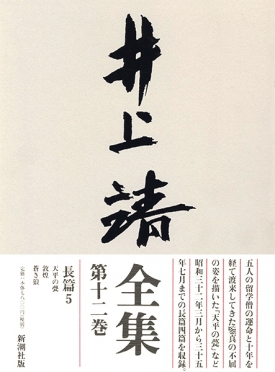 井上靖
五人の留学僧の運命と十年を
経て渡来してきた鑑真の不屈
の姿を描いた『天平の甍』など
昭和三十二年三月から三十五
年七月までの長篇四篇を収録。
全集
第十二巻
長篇5
天平の甍
敦煌
蒼き狼
新潮社版